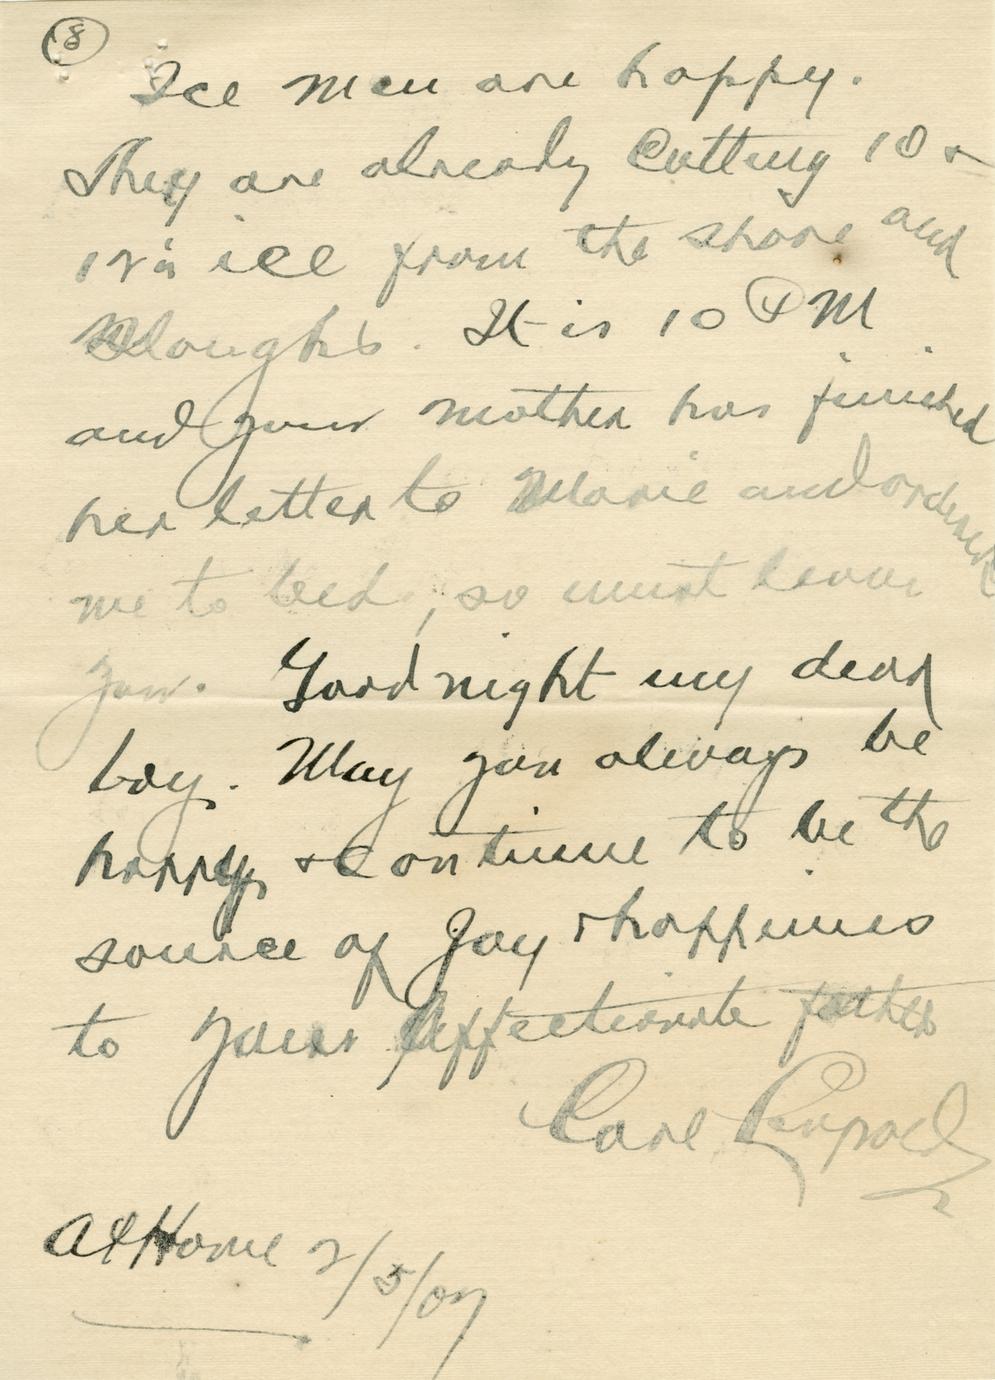 8
Ice men are happy.
They are already cutting 10 &
12 in ice from the shore and
sloughs. It is 10 PM
and your mother has finished
her letter to Marie and ordered
me to bed, so must leave
you. Good night my dear
boy. May you always be
happy & continue to be the
source of Joy & happiness
to your affectionate father
Carl
At Home 2/5/07